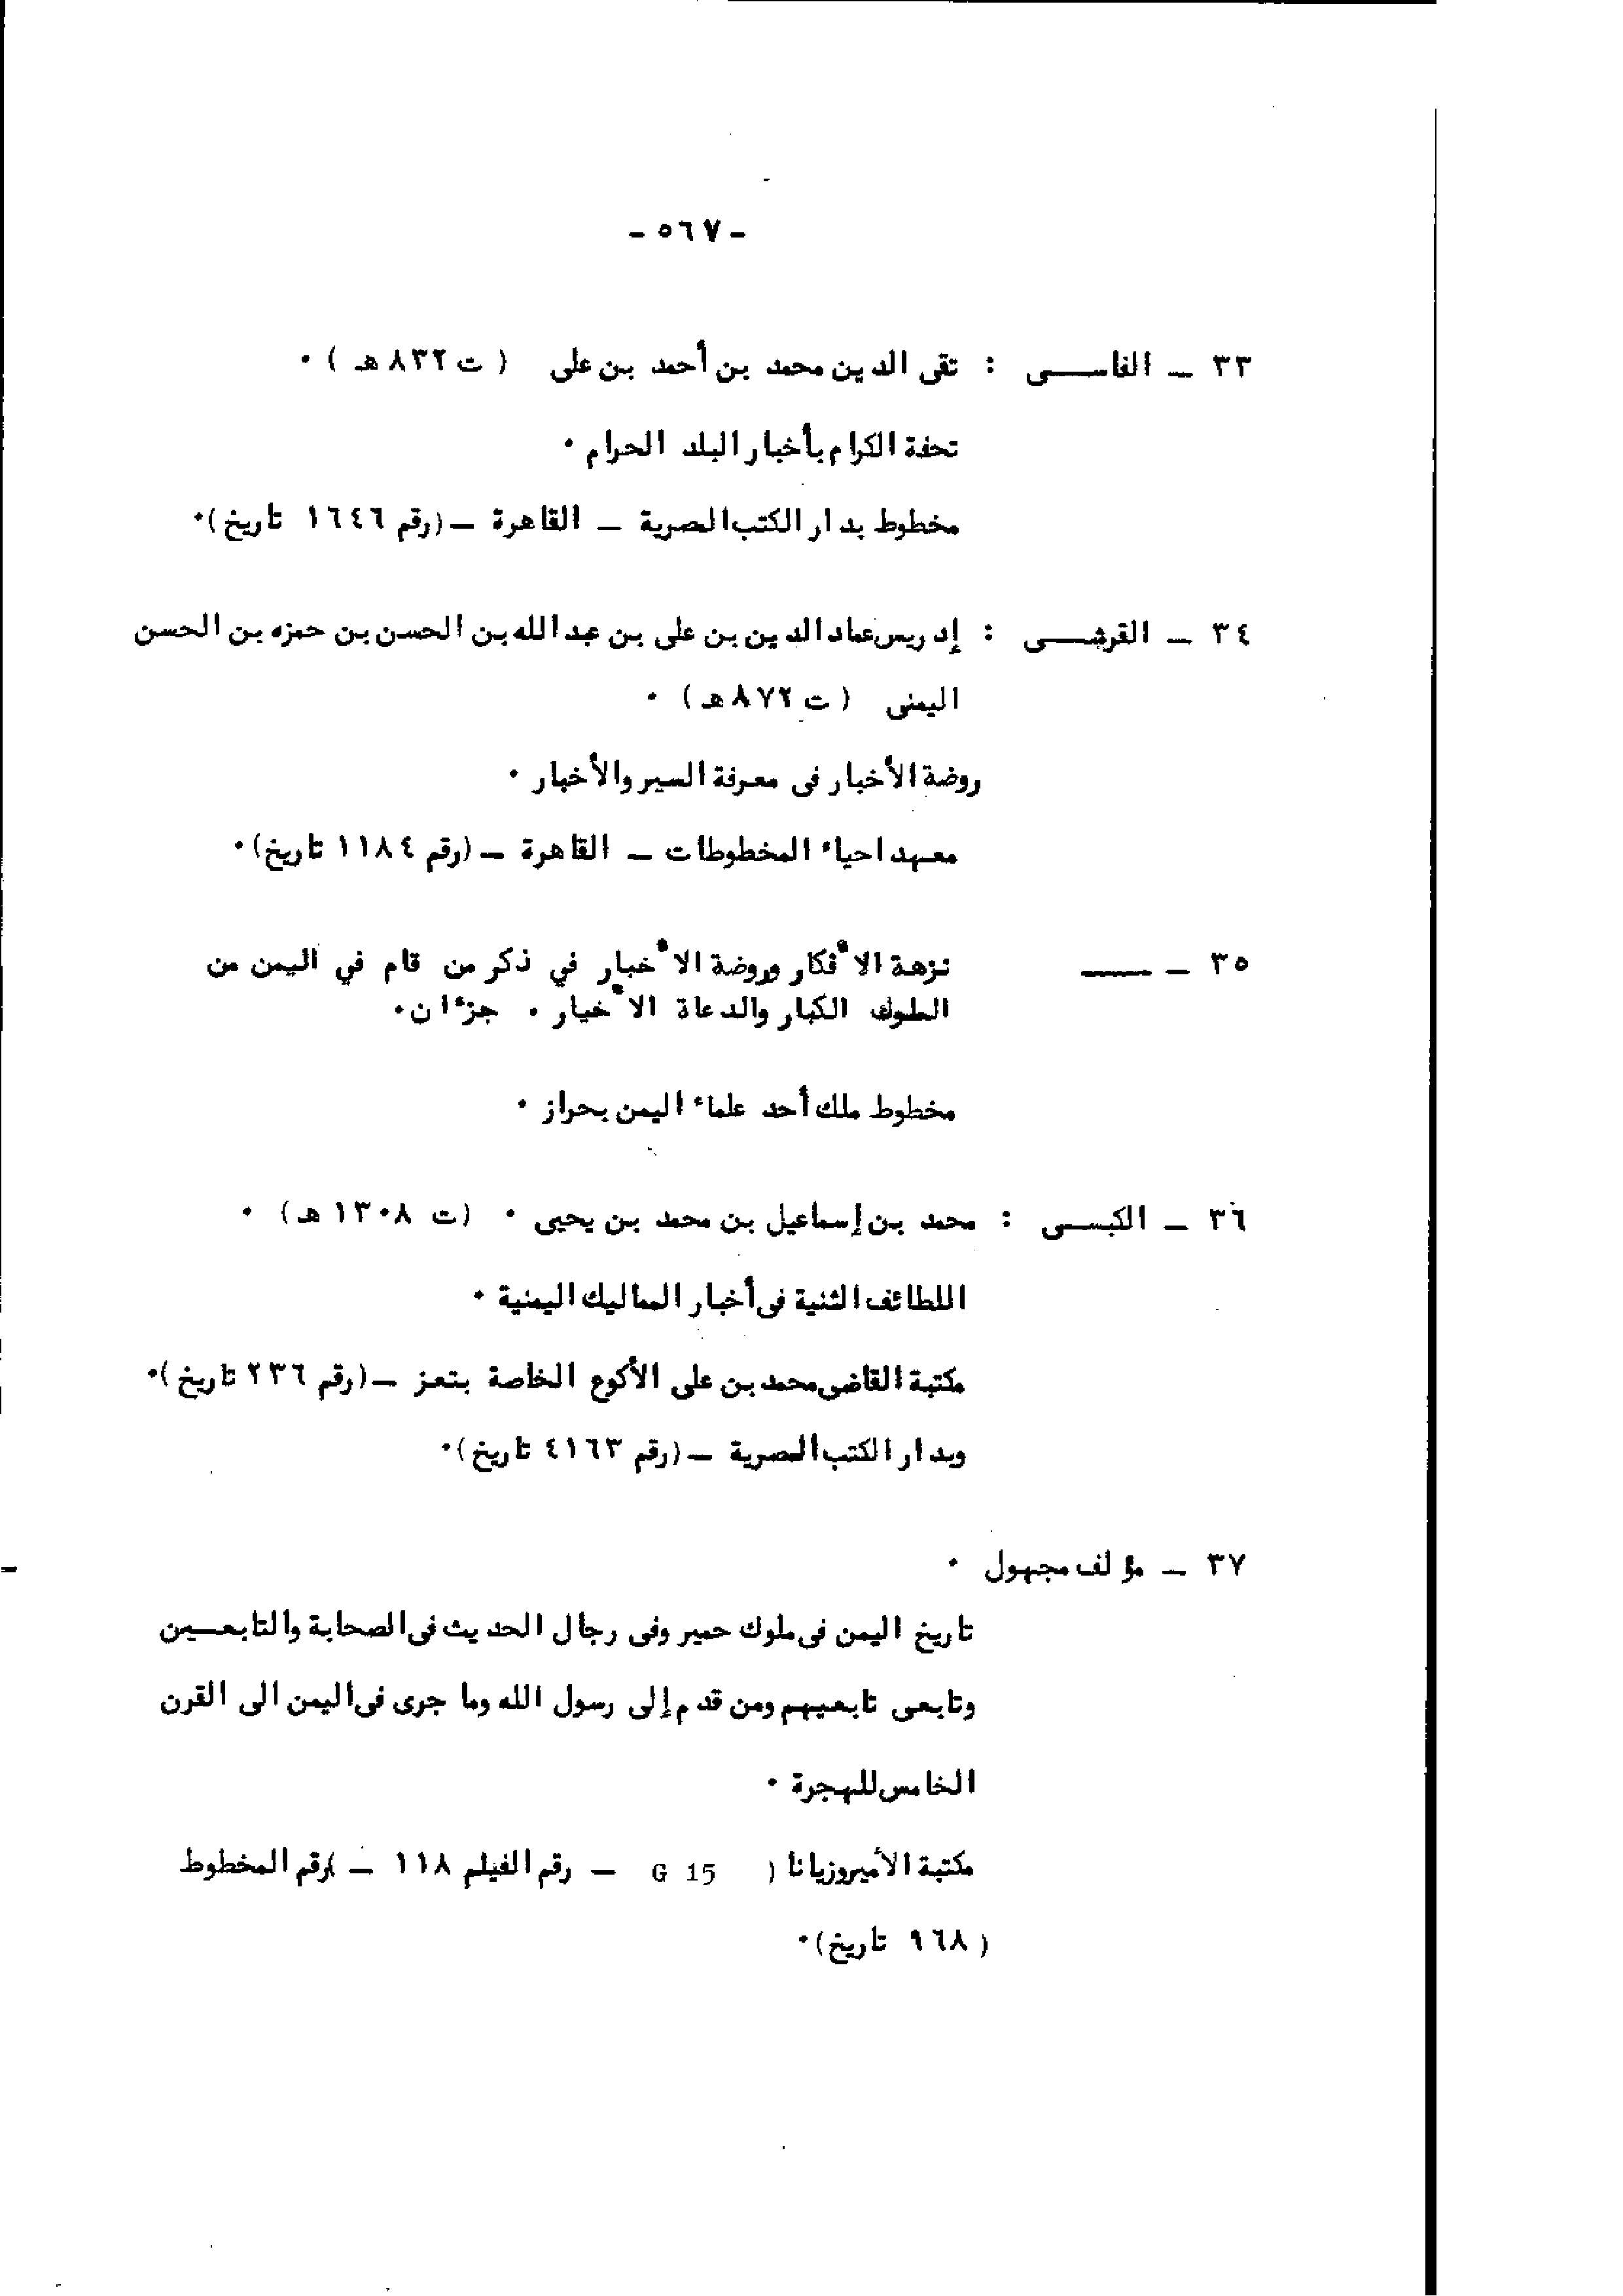 - ٥٦٧ -
٣٣ ـ الفاســـى : تقى الدين محمد بن أحمد بن على ( ت ٨٣٢ هـ ) ٠
تحفة الكرام بأخبار البلد الحرام ٠
مخطوط بدار الكتب المصرية ـ القاهرة ـ (رقم ١٦٤٦ تاريخ)٠
٣٤ ـ القرشـــى : إدريس عماد الدين بن على بن عبد الله بن الحسن بن حمزه بن الحسن
اليمنى ( ت ٨٧٢ هـ) ٠
روضة الأخبار فى معرفة السير والأخبار ٠
معهد احياء المخطوطات ـ القاهرة ـ (رقم ١١٨٤ تاريخ)٠
٣٥ ـ ــــــ نزهة الأفكار وروضة الأخبار في ذكر من قام في اليمن من
الملوك الكبار والدعاة الأخيار ٠ جزءان٠
مخطوط ملك أحد علماء اليمن بحراز ٠
٣٦ ـ الكبســى : محمد بن إسماعيل بن محمد بن يحيى ٠ (ت ١٣٠٨ هـ) ٠
اللطائف الثنية فى أخبار المماليك اليمنية ٠
مكتبة القاضى محمد بن على الأكوع الخاصة بتعز ـ (رقم ٢٣٦ تاريخ)٠
وبدار الكتب المصرية ـ (رقم ٤١٦٣ تاريخ)٠
٣٧ ـ مؤلف مجهول ٠
تاريخ اليمن فى ملوك حمير وفى رجال الحديث فى الصحابة والتابعــين
وتابعى تابعيهم ومن قدم إلى رسول الله وما جرى فى اليمن الى القرن
الخامس للهجرة ٠
مكتبة الأمبروزيانا ( G 15 ) ـ رقم الفيلم ١١٨ ـ )رقم المخطوط
( ٩٦٨ تاريخ)٠